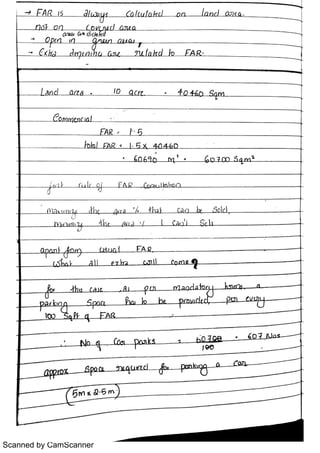 → FAR is always Calculated on land area.
not on Covered area
area Calculated
→ Open in green area,
→ Extra are related to FAR.
Land area . 10 acre . 40460 Sqm
Commercial
FAR = 1.5
total FAR = 1.5 x 40460
= 60690 m² . 60700 Sqm²
rule of FAR Consultation
maximize the area % that can be Sold,
the area I Can't Sell
apart from usual FAR,
What all extra will come?
for the case , As per mandatory , a
parking Space has to be provided per every
100 Sqft of FAR
∴ No. of Car parks = 60700 / 100 = 607 Nos
approx Space required for parking a car
5m x 2.5m
Scanned by CamScanner